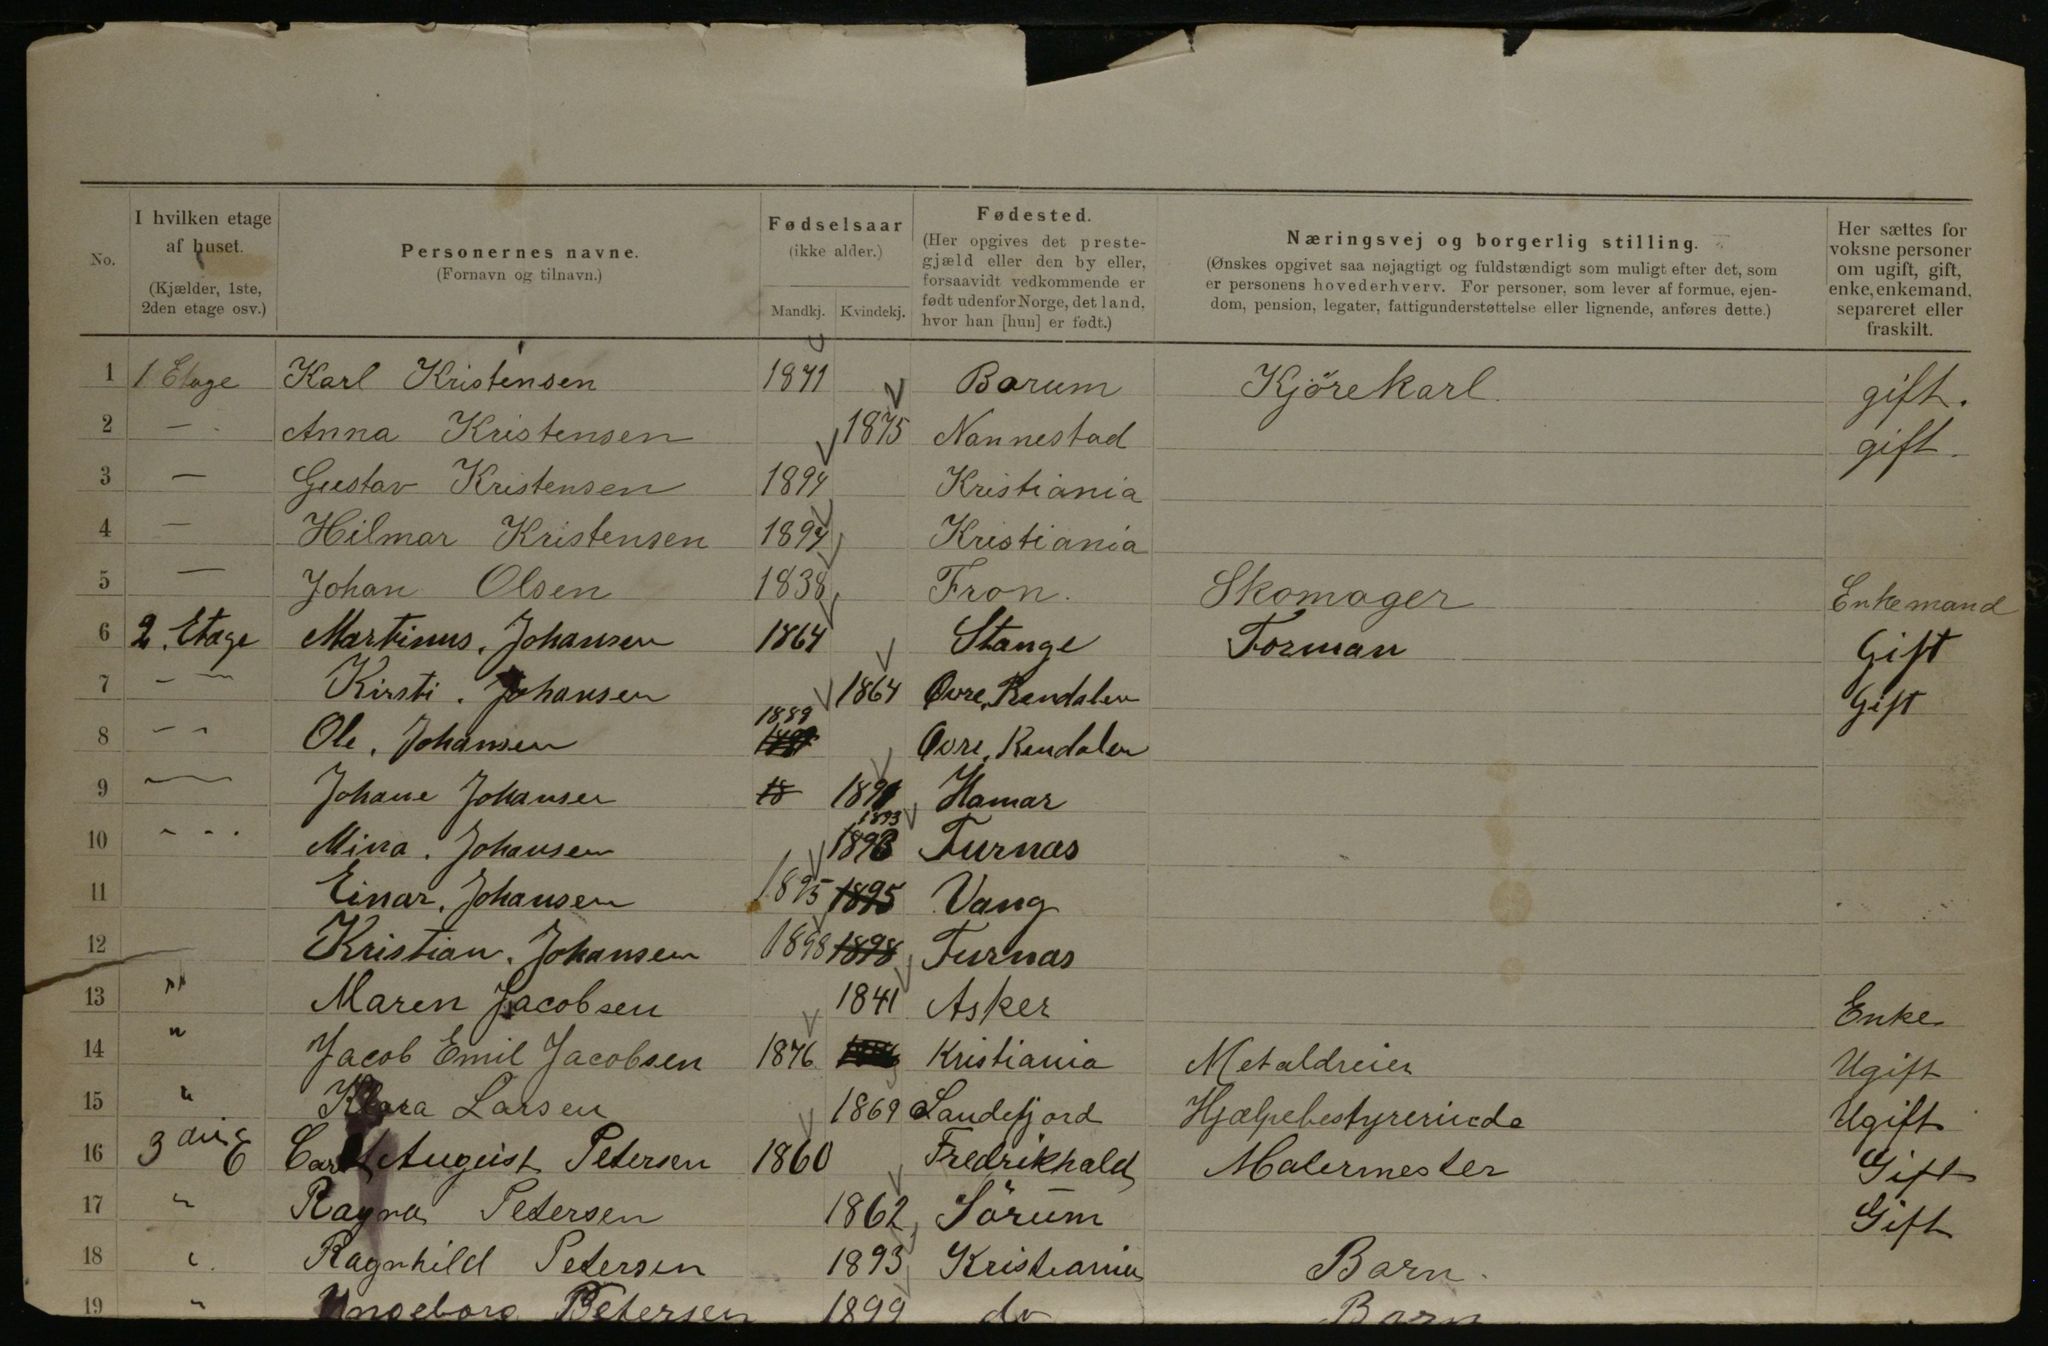 No.
I hvilken etage af huset. (Kjælder, 1ste, 2den etage osv.)
Personernes navne. (Fornavn og tilnavn.)
Fødselsaar (ikke alder.) Mandkj. Kvindekj.
Fødested. (Her opgives det prestegjæld eller den by eller, forsaavidt vedkommende er født udenfor Norge, det land, hvor han [hun] er født.)
Næringsvej og borgerlig stilling. (Ønskes opgivet saa nøjagtigt og fuldstændigt som muligt efter det, som er personens hovederhverv. For personer, som lever af formue, ejendom, pension, legater, fattigunderstøttelse eller lignende, anføres dette.)
Her sættes for voksne personer om ugift, gift, enke, enkemand, separeret eller fraskilt.
1 1 Etage Karl Kristensen 1871 Borum Kjörekarl gift.
2 — Anna Kristensen 1875 Nannestad gift.
3 — Gustav Kristensen 1894 Kristiania
4 — Hilmar Kristensen 1897 Kristiania
5 — Johan Olsen 1838 Fron. Skomager Enkemand
6 2. Etage Martinus. Johansen 1864 Stange Forman Gift
7 - - Kirsti. Johansen 1864 Øvre. Rendalen Gift
8 - - Ole. Johansen 1889 Øvre. Rendalen
9 - - Johane Johansen 18 1891 Hamar
10 - - - Mina. Johansen 1893 1893 Furnas
11 Einar. Johansen 1895 1895 Vang
12 Kristian. Johansen 1898 1898 Furnas
13 " Maren Jacobsen 1841 Asker Enke
14 " Jacob Emil Jacobsen 1876 Kristiania Metaldreier Ugift
15 " Klara Larsen 1869 Sandefjord Hjælpebestyrerinde Ugift
16 3 die E Carl August Petersen 1860 Fredrikhald Malermester Gift
17 " Ragna Petersen 1862 Sörum Gift
18 " Ragnhild Petersen 1893 Kristiania Barn.
19 " Ingeborg Petersen 1899 do Barn